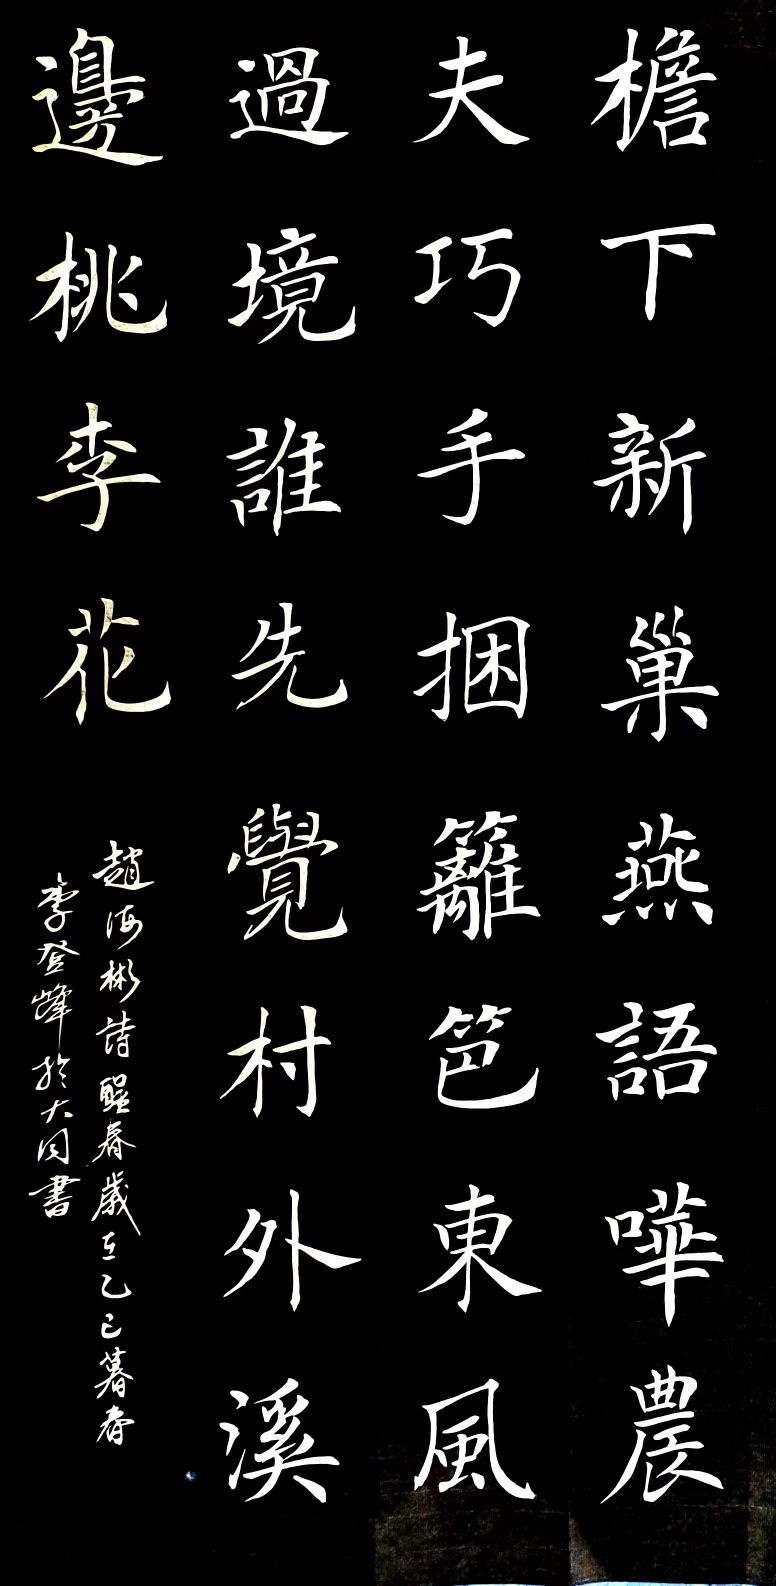 檐下新巢燕語嘩農
夫巧手捆籬笆東風
過境誰先覺村外溪
邊桃李花
趙海彬詩 春歲在乙巳暮春
李登峰於大同書